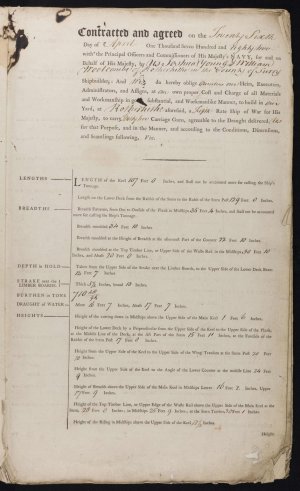 Contracted and agreed on the Twenty Sixth
Day of April One Thousand Seven Hundred and Eighty two
with the Principal Officers and Commissioners of His Majesty's NAVY, for and on
Behalf of His Majesty, by Us Josiah Young & William
Woolcombe of Rotherhithe in the County of Surry
Shipbuilders; And We do hereby oblige ourselves our Heirs, Executors,
Administrators, and Assigns, at our own proper Cost and Charge of all Materials
and Workmanship in good substantial, and Workmanlike Manner, to build in
Yard, at Rotherhithe aforesaid, a Rate Ship of War for His
Majesty, to carry Carriage Guns, agreeable to the Draught delivered
for that Purpose, and in the Manner, and according to the Conditions, Dimensions,
and Scantlings following, Viz.
LENGTHS
LENGTH of the Keel 107 Feet 0 Inches, and shall not be accounted more for calling the Ship's
Tonnage.
Length on the Lower Deck from the Rabbit of the Stem to the Rabbit of the Stern Post 129 Feet 0 Inches.
BREADTHS
Breadth Extreme, from One to Outside of the Plank in Midships 35 Feet 4 Inches, and shall not be accounted
more for calling the Ship's Tonnage.
Breadth moulded 34 Feet 10 Inches.
Breadth moulded at the Height of Breadth at the aftermost Part of the Counter 22 Feet 10 Inches.
Breadth moulded at the Top Timber Line, or Upper Side of the Waist Rail in the Midships 30 Feet 10
Inches, and Abaft 20 Feet 0 Inches.
DEPTH in HOLD
Taken from the Upper Side of the Strake next the Limber Boards, to the Upper Side of the Lower Deck Beam
12 Feet 7 Inches
STRAKE next the LIMBER BOARDS
Thick Inches, broad 10 Inches.
BURTHEN in TONS
710
DRAUGHT of WATER
Afore 16 Feet 7 Inches, Abaft 17 Feet 7 Inches.
HEIGHTS
Height of the cutting down in Midships above the Upper Side of the Main Keel 1 Feet 6 Inches.
Height of the Lower Deck by a Perpendicular from the Upper Edge of the Keel to the Upper Side of the Plank,
at the Middle Line of the Deck, at the Aft Part of the Stem 15 Feet 11 Inches, at the Foreside of the
Rabbit of the Stern Post 17 Feet 0 Inches.
Height from the Upper Side of the Keel to the Upper Side of the Wing Transom at the Stern Post 20 Feet
10 Inches.
Height from the Upper Side of the Keel to the Angle of the Lower Counter at the middle Line 24 Feet
9 Inches.
Height of Breadth above the Upper Side of the Main Keel in Midships Lower 10 Feet 7 Inches, Upper
17 Feet 9 Inches.
Height of the Top Timber Line, or Upper Edge of the Waist Rail above the Upper Side of the Main Keel at the
Stem, 28 Feet 0 Inches; in Midships 25 Feet 9 Inches, at the Stern Timber 32 Feet 1 Inches.
Height of the Rising in Midships above the Upper Side of the Keel, Inches.
Height